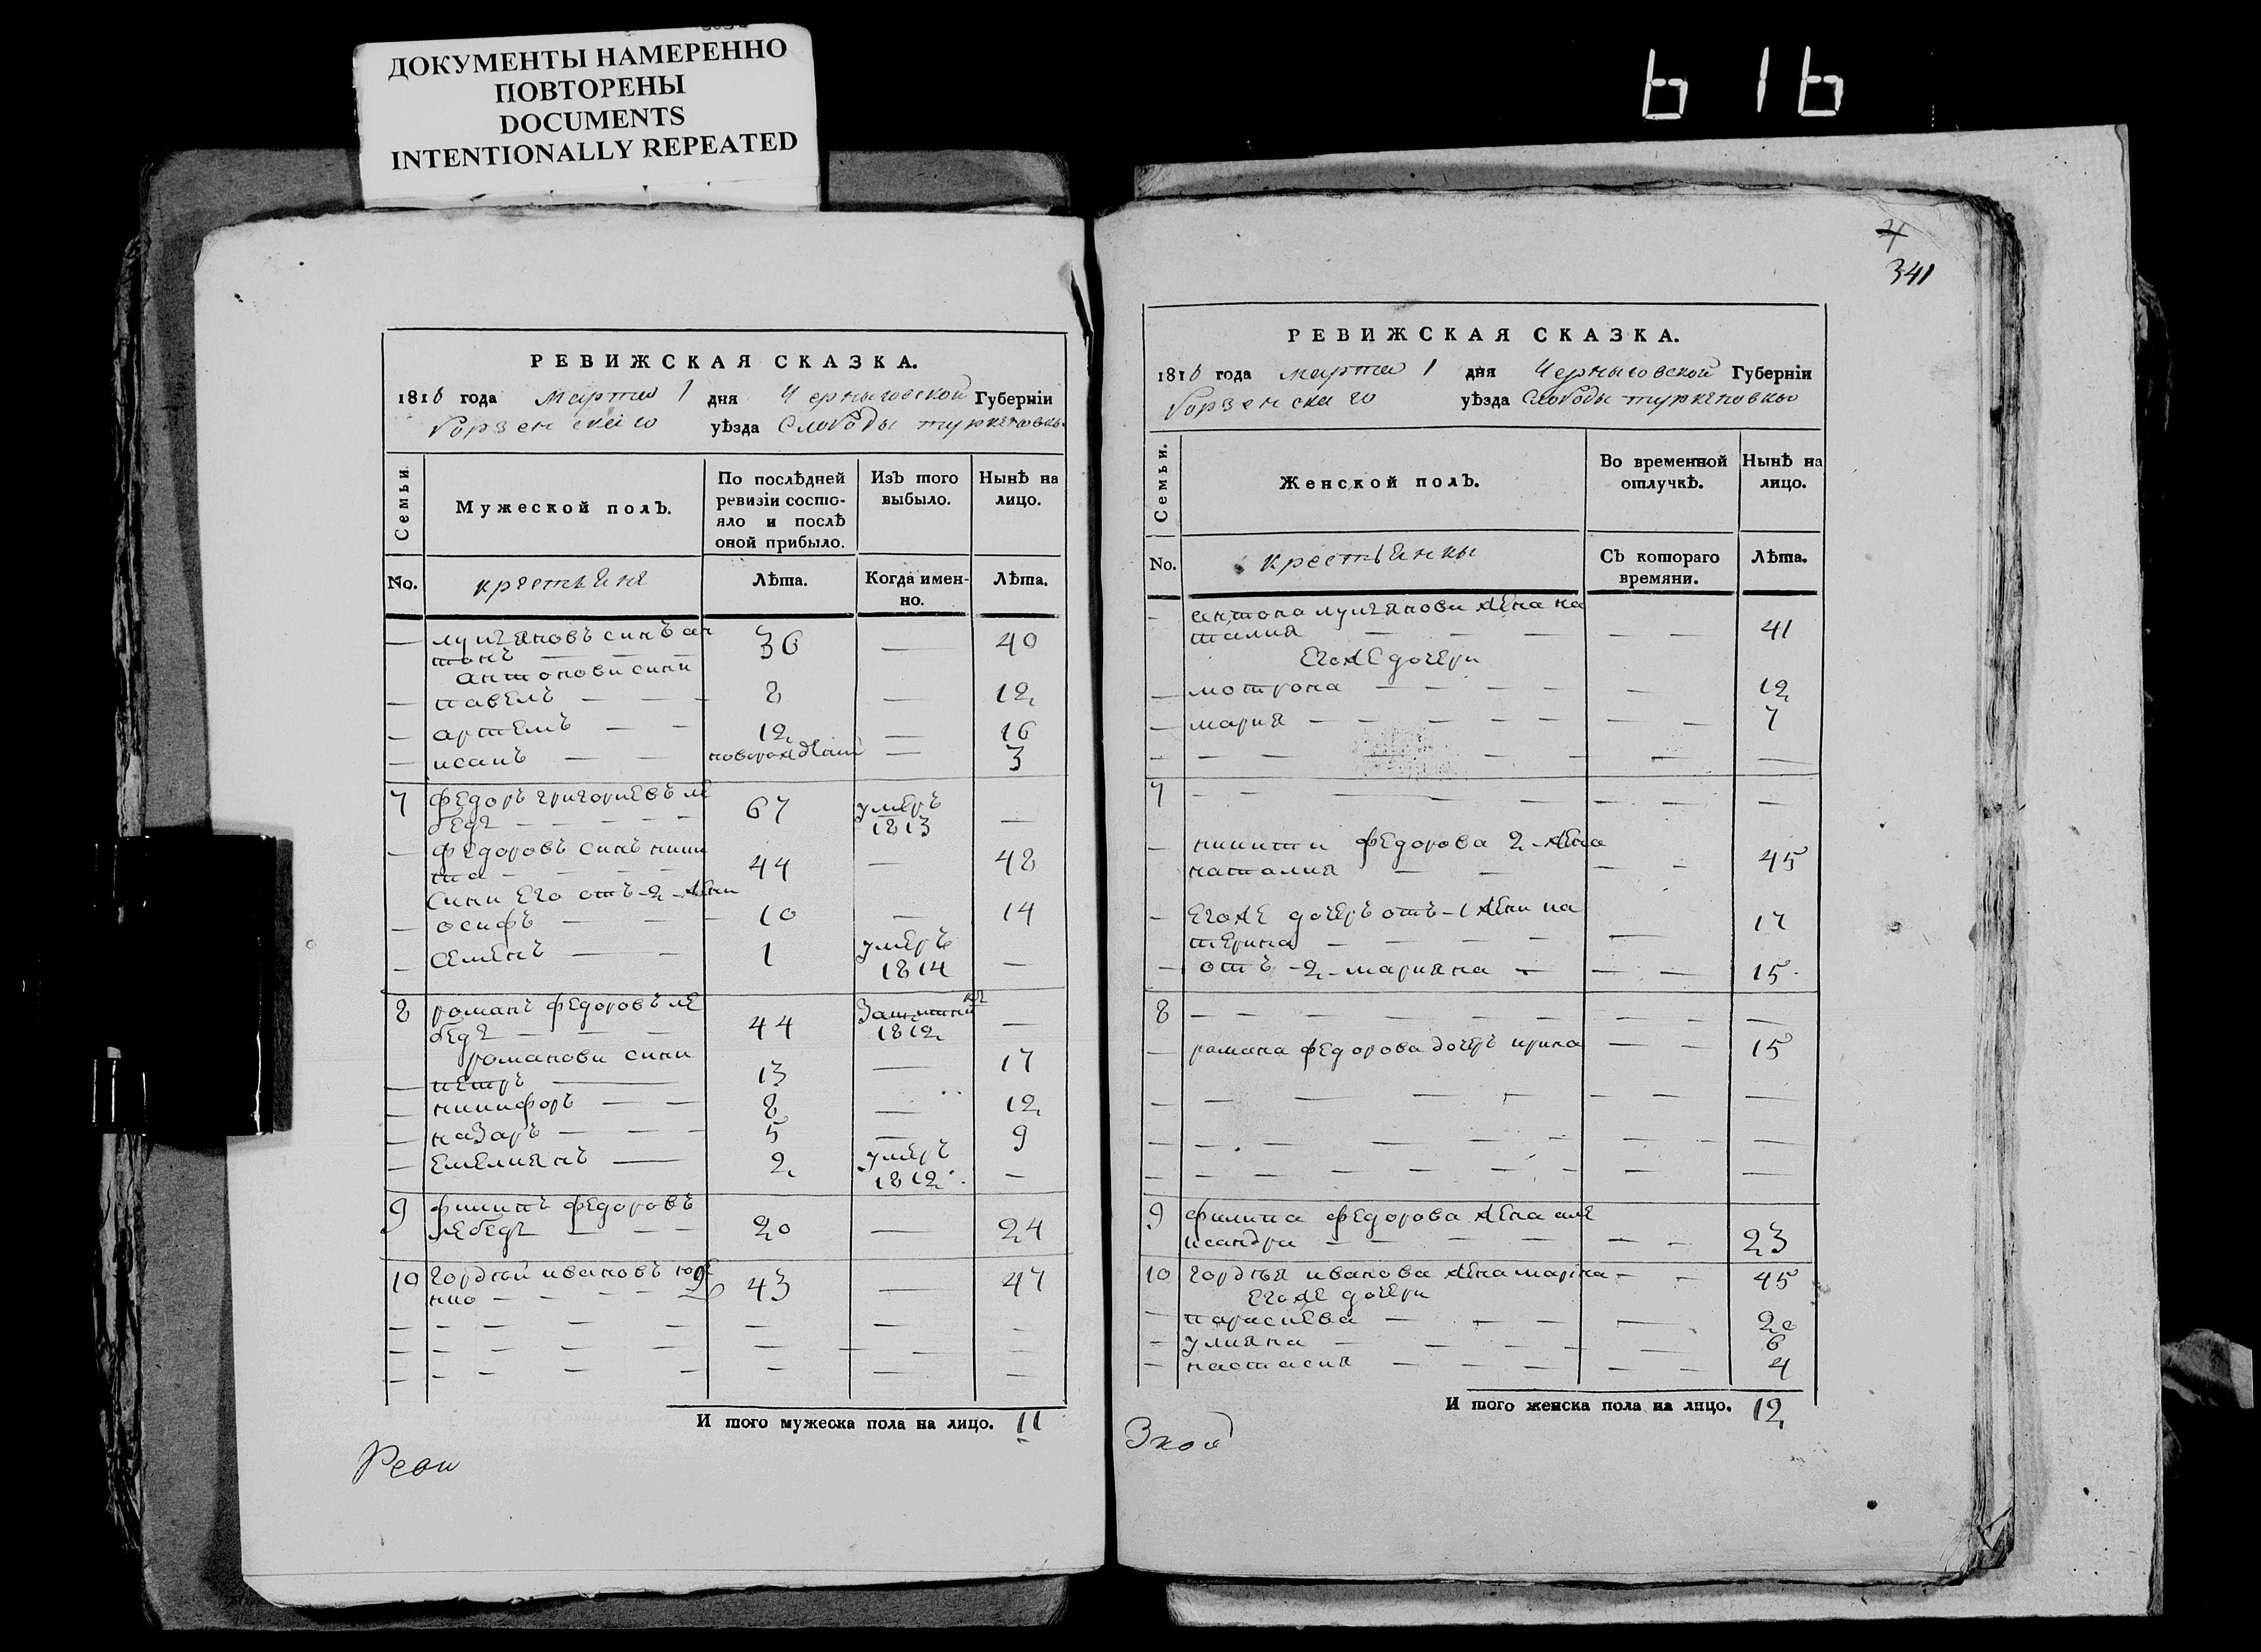 ДОКУМЕНТЫ НАМЕРЕННО
ПОВТОРЕНЫ
DOCUMENTS
INTENTIONALLY REPEATED
616
РЕВИЖСКАЯ СКАЗКА.
1816 года марта 1 дня Черниговской Губерніи
Борзенскаго уѣзда Слободы туркеновки
Семьи.
Мужеской полъ.
По послѣдней ревизіи состояло и послѣ оной прибыло.
Изъ того выбыло.
Нынѣ на лицо.
No. крестьяне Лѣта. Когда именно. Лѣта.
— синъ ан
тонъ — — — 36 — 40
антонови сини
— павелъ — — 8 — 12
— артемъ — — 12 — 16
— — — — 3
7 федоръ григориевъ ле
бедь — — — 67 умеръ 1813 —
— федоровъ синъ ники
та — — — 44 — 48
сини его отъ -2- жени
— осифъ — — 10 — 14
— семенъ — — 1 умеръ 1814 —
8 романъ федоровъ ле
бедь — — — 44 1812 —
романови сини
— петръ — 13 — 17
— никифоръ — — 8 — 12
— назаръ — — 5 — 9
— емелиянъ — 2 умеръ 1812 —
9 филипъ федоровъ
лебедь — — 20 — 24
10 гордѣй ивановъ
— — — 43 — 47
И того мужеска пола на лицо. 11
Реви
4
341
РЕВИЖСКАЯ СКАЗКА.
1816 года марта 1 дня Черниговской Губерніи
Борзенскаго уѣзда Слободы туркеновки
Семьи.
Женской полъ.
Во временной отлучкѣ.
Нынѣ на лицо.
No. крестьянки Съ котораго времяни. Лѣта.
— антона жена на
талия — — — — — 41
его же дочери
— мотрона — — — — — 12
— мария — — — — — 7
7 — — — — — — —
— никити федорова 2-жена
наталия — — — — 45
— его же дочеръ отъ -1 жени ка
терина — — — — 17
— отъ -2- марияна — — — 15
8 — — — — — — —
— романа федорова дочеръ ирина — — 15
9 филипа федорова жена але
ксандра — — — — — 23
10 гордѣя иванова жена марина — — 45
его же дочери
— параскева — — — — 20
— улияна — — — — 6
— настасия — — — — 4
И того женска пола на лицо. 12